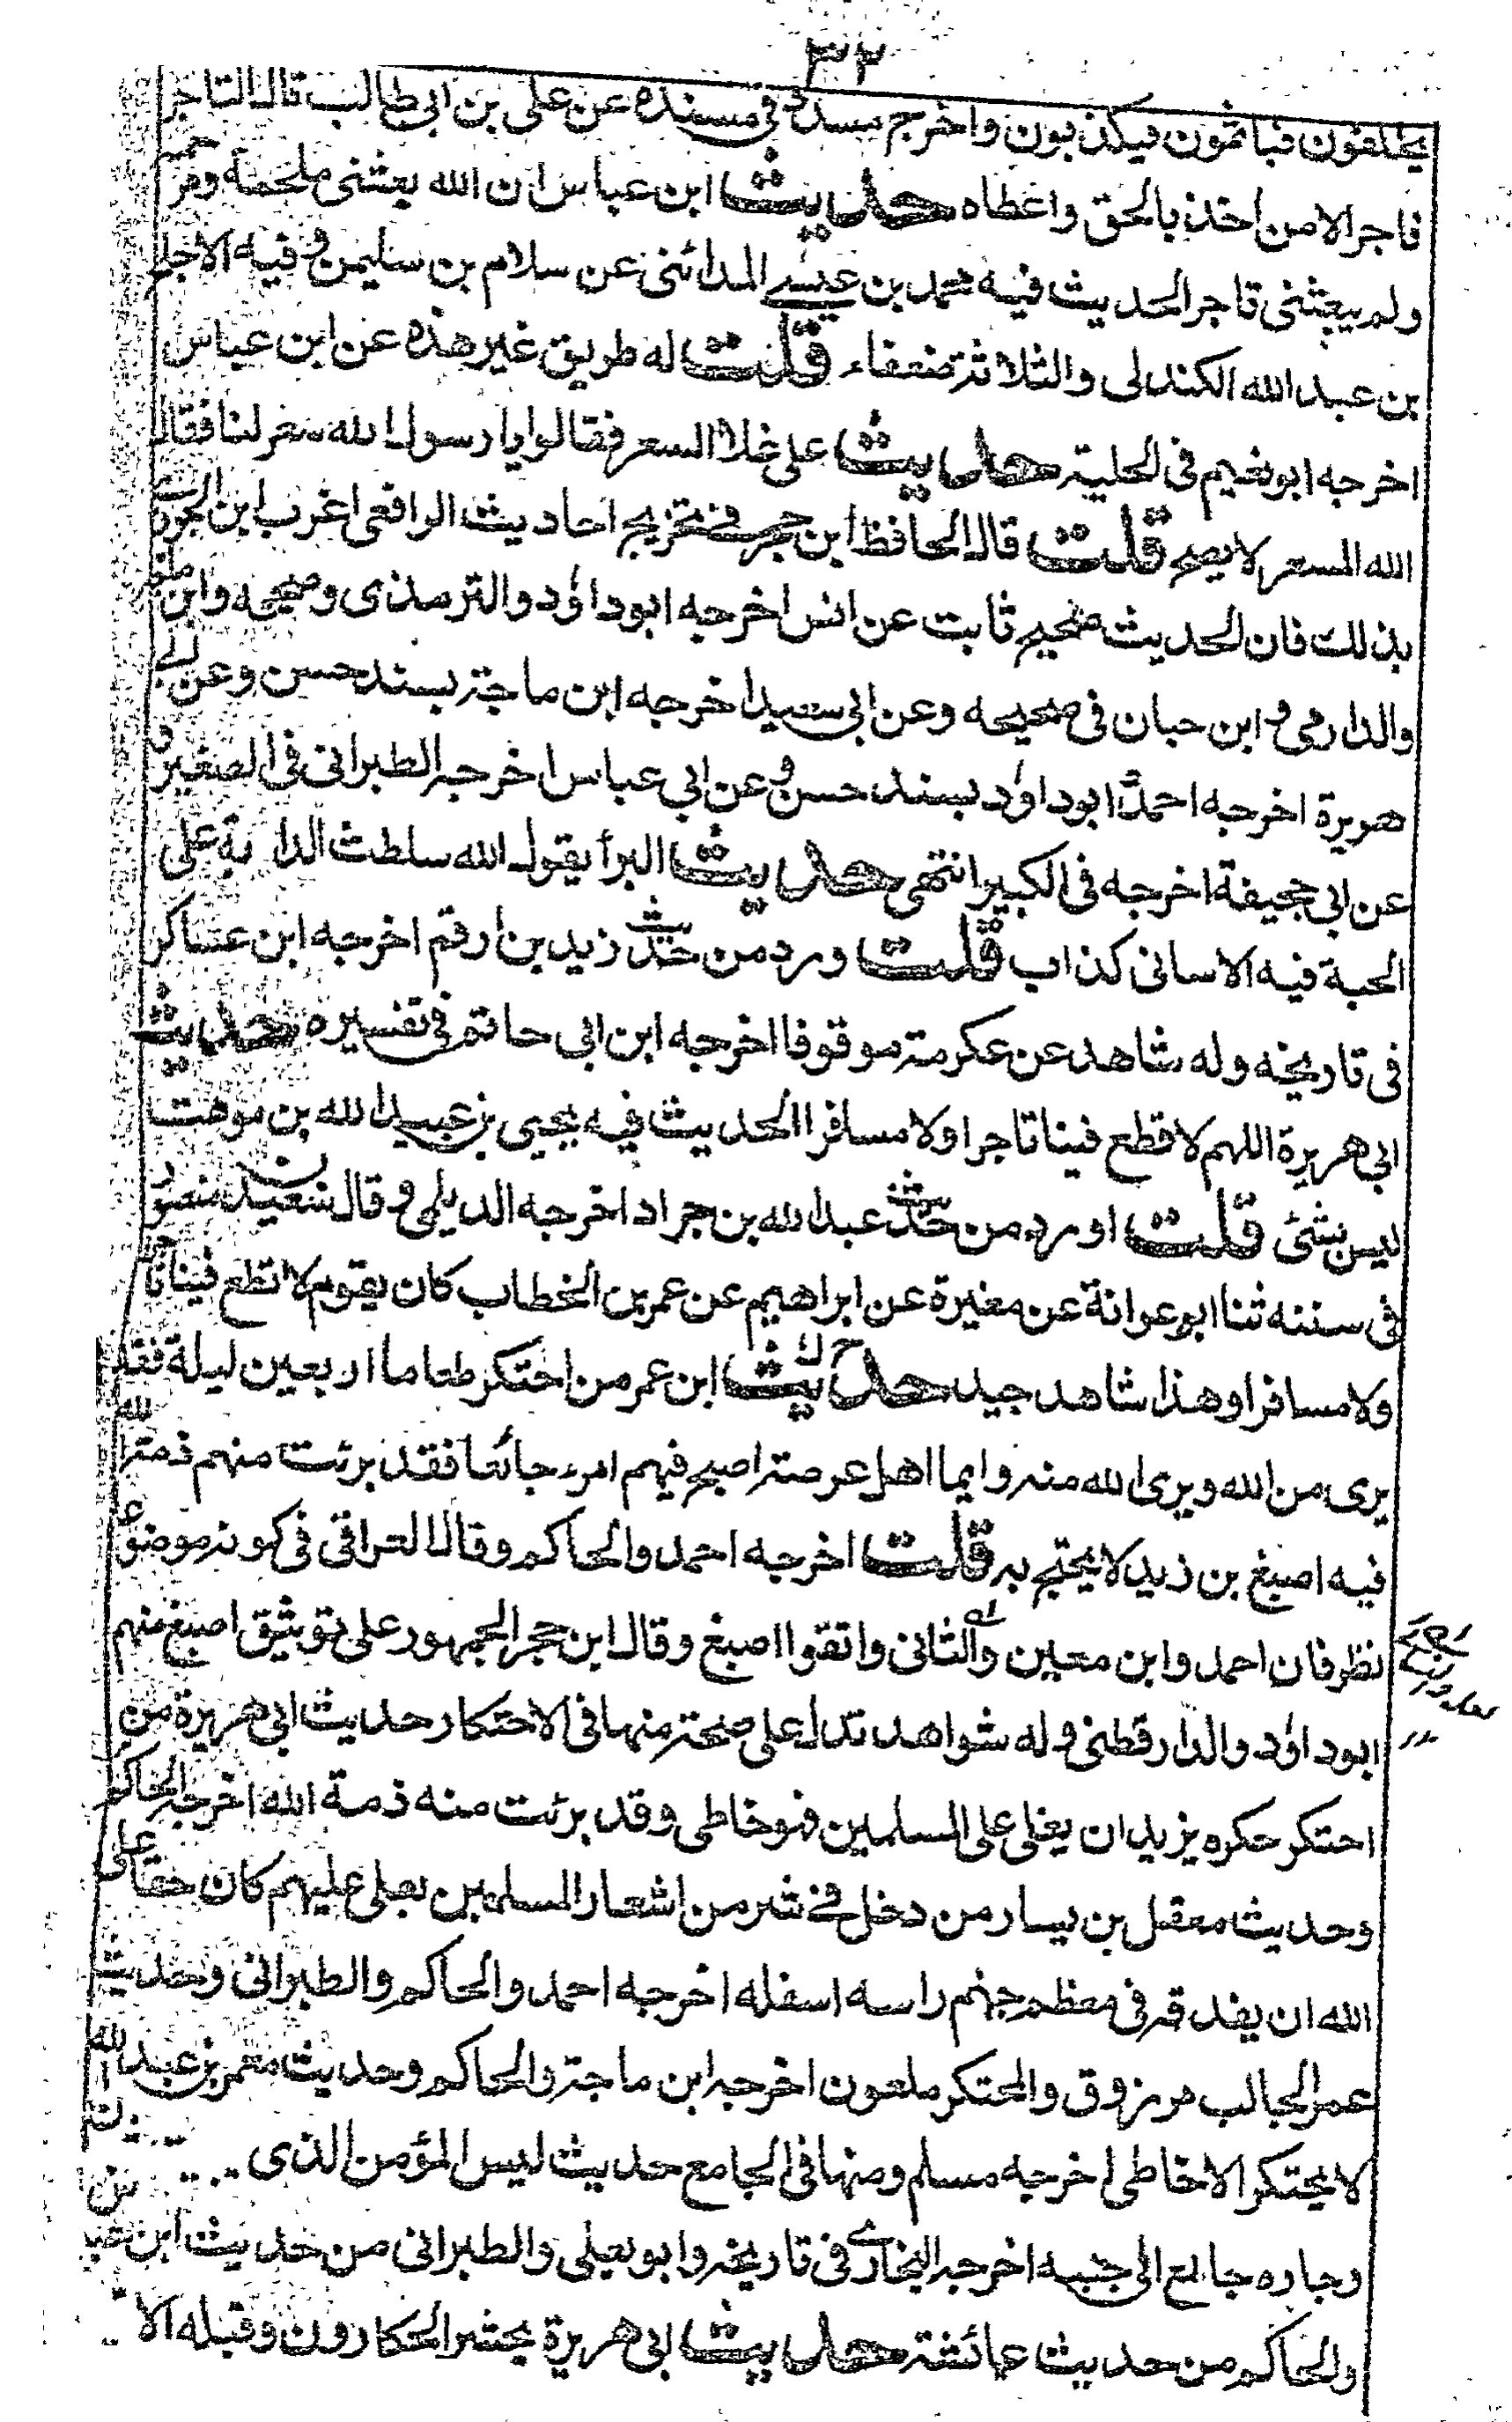 ٣٣
يحلفون فياثمون ويكذبون واخرج مسدد في مسنده عن على بن ابى طالب قال التاجر
فاجر الا من اخذ بالحق واعطاه حديث ابن عباس ان الله بعثنى ملحمة ومرحمة
ولم يبعثنى تاجرا الحديث فيه محمد بن عيسى المدائنى عن سلام بن سليمن وفيه الاجلح
بن عبد الله الكندلى والثلاثة ضعفاء قلت له طريق غير هذه عن ابن عباس
اخرجه ابو نعيم فى الحلية حديث على غلا السعر فقالوا يا رسول الله سعر لنا فقال
الله المسعر لا يصح قلت قال الحافظ ابن حجر فى تخريج احاديث الرافعى اغرب ابن الجوزى
بذلك فان الحديث صحيح ثابت عن انس اخرجه ابو داؤد والترمذى وصححه وابن ماجة
والدارمى و ابن حبان فى صحيحه وعن ابى سعيد اخرجه ابن ماجة بسند حسن وعن ابى
هريرة اخرجه احمد و ابو داؤد بسند حسن و عن ابي عباس اخرجه الطبرانى فى الصغير و
عن ابى جحيفة اخرجه فى الكبير انتهى حديث البرأ يقول الله سلطت الدابة على
الحبة فيه الاسانى كذاب قلت ورد من حديث زيد بن ارقم اخرجه ابن عساكر
فى تاريخه وله شاهد عن عكرمة موقوفا اخرجه ابن ابي حاتم فى تفسيره حديث
ابى هريرة اللهم لا قطع فينا تاجرا ولا مسافرا الحديث فيه يحيى بن عبيد الله بن موهت
ليس بشئ قلت او رد من حديث عبد الله بن جراد اخرجه الديلمى و قال سعيد بن منصور
فى سننه ثنا ابو عوانة عن مغيرة عن ابراهيم عن عمر بن الخطاب كان يقوم لا تطع فينا تاجرا
ولا مسافرا وهذا شاهد جيد حديث ابن عمر من احتكر طعاما اربعين ليلة فقد
برى من الله وبرى الله منه وايما اهل عرصة اصبح فيهم امرء جائعا فقد برئت منهم ذمة الله
فيه اصبغ بن زيد لا يحتج به قلت اخرجه احمد والحاكم وقال العراقى فى كونه موضوعا
نظر فان احمد وابن معين والثانى واتقوا اصبغ وقال ابن حجر الجمهور على توثيق اصبغ منهم
ابو داؤد والدارقطنى وله شواهد تدل على صحته منها فى الاحتكار حديث ابى هريرة من
احتكر حكره يزيد ان يغلى على المسلمين فهو خاطى وقد برئت منه ذمة الله اخرجه الحاكم
وحديث معقل بن يسار من دخل فى شر من اشعار المسلمين بعلى عليهم كان حقا على
الله ان يفدقه فى معظم جهنم راسه اسفله اخرجه احمد والحاكم والطبرانى وحديث
عمر الجالب مرزوق والمحتكر ملعون اخرجه ابن ماجة والحاكم وحديث معمر بن عبد الله
لا يحتكر الا خاطى اخرجه مسلم ومنها فى الجامع حديث ليس المؤمن الذى
وجاره جائع الى جنبه اخرجه البخارى فى تاريخه وابو يعلى والطبرانى من حديث ابن
والحاكم من حديث عائشة حديث ابى هريرة يحشر الحكارون وقبله الا